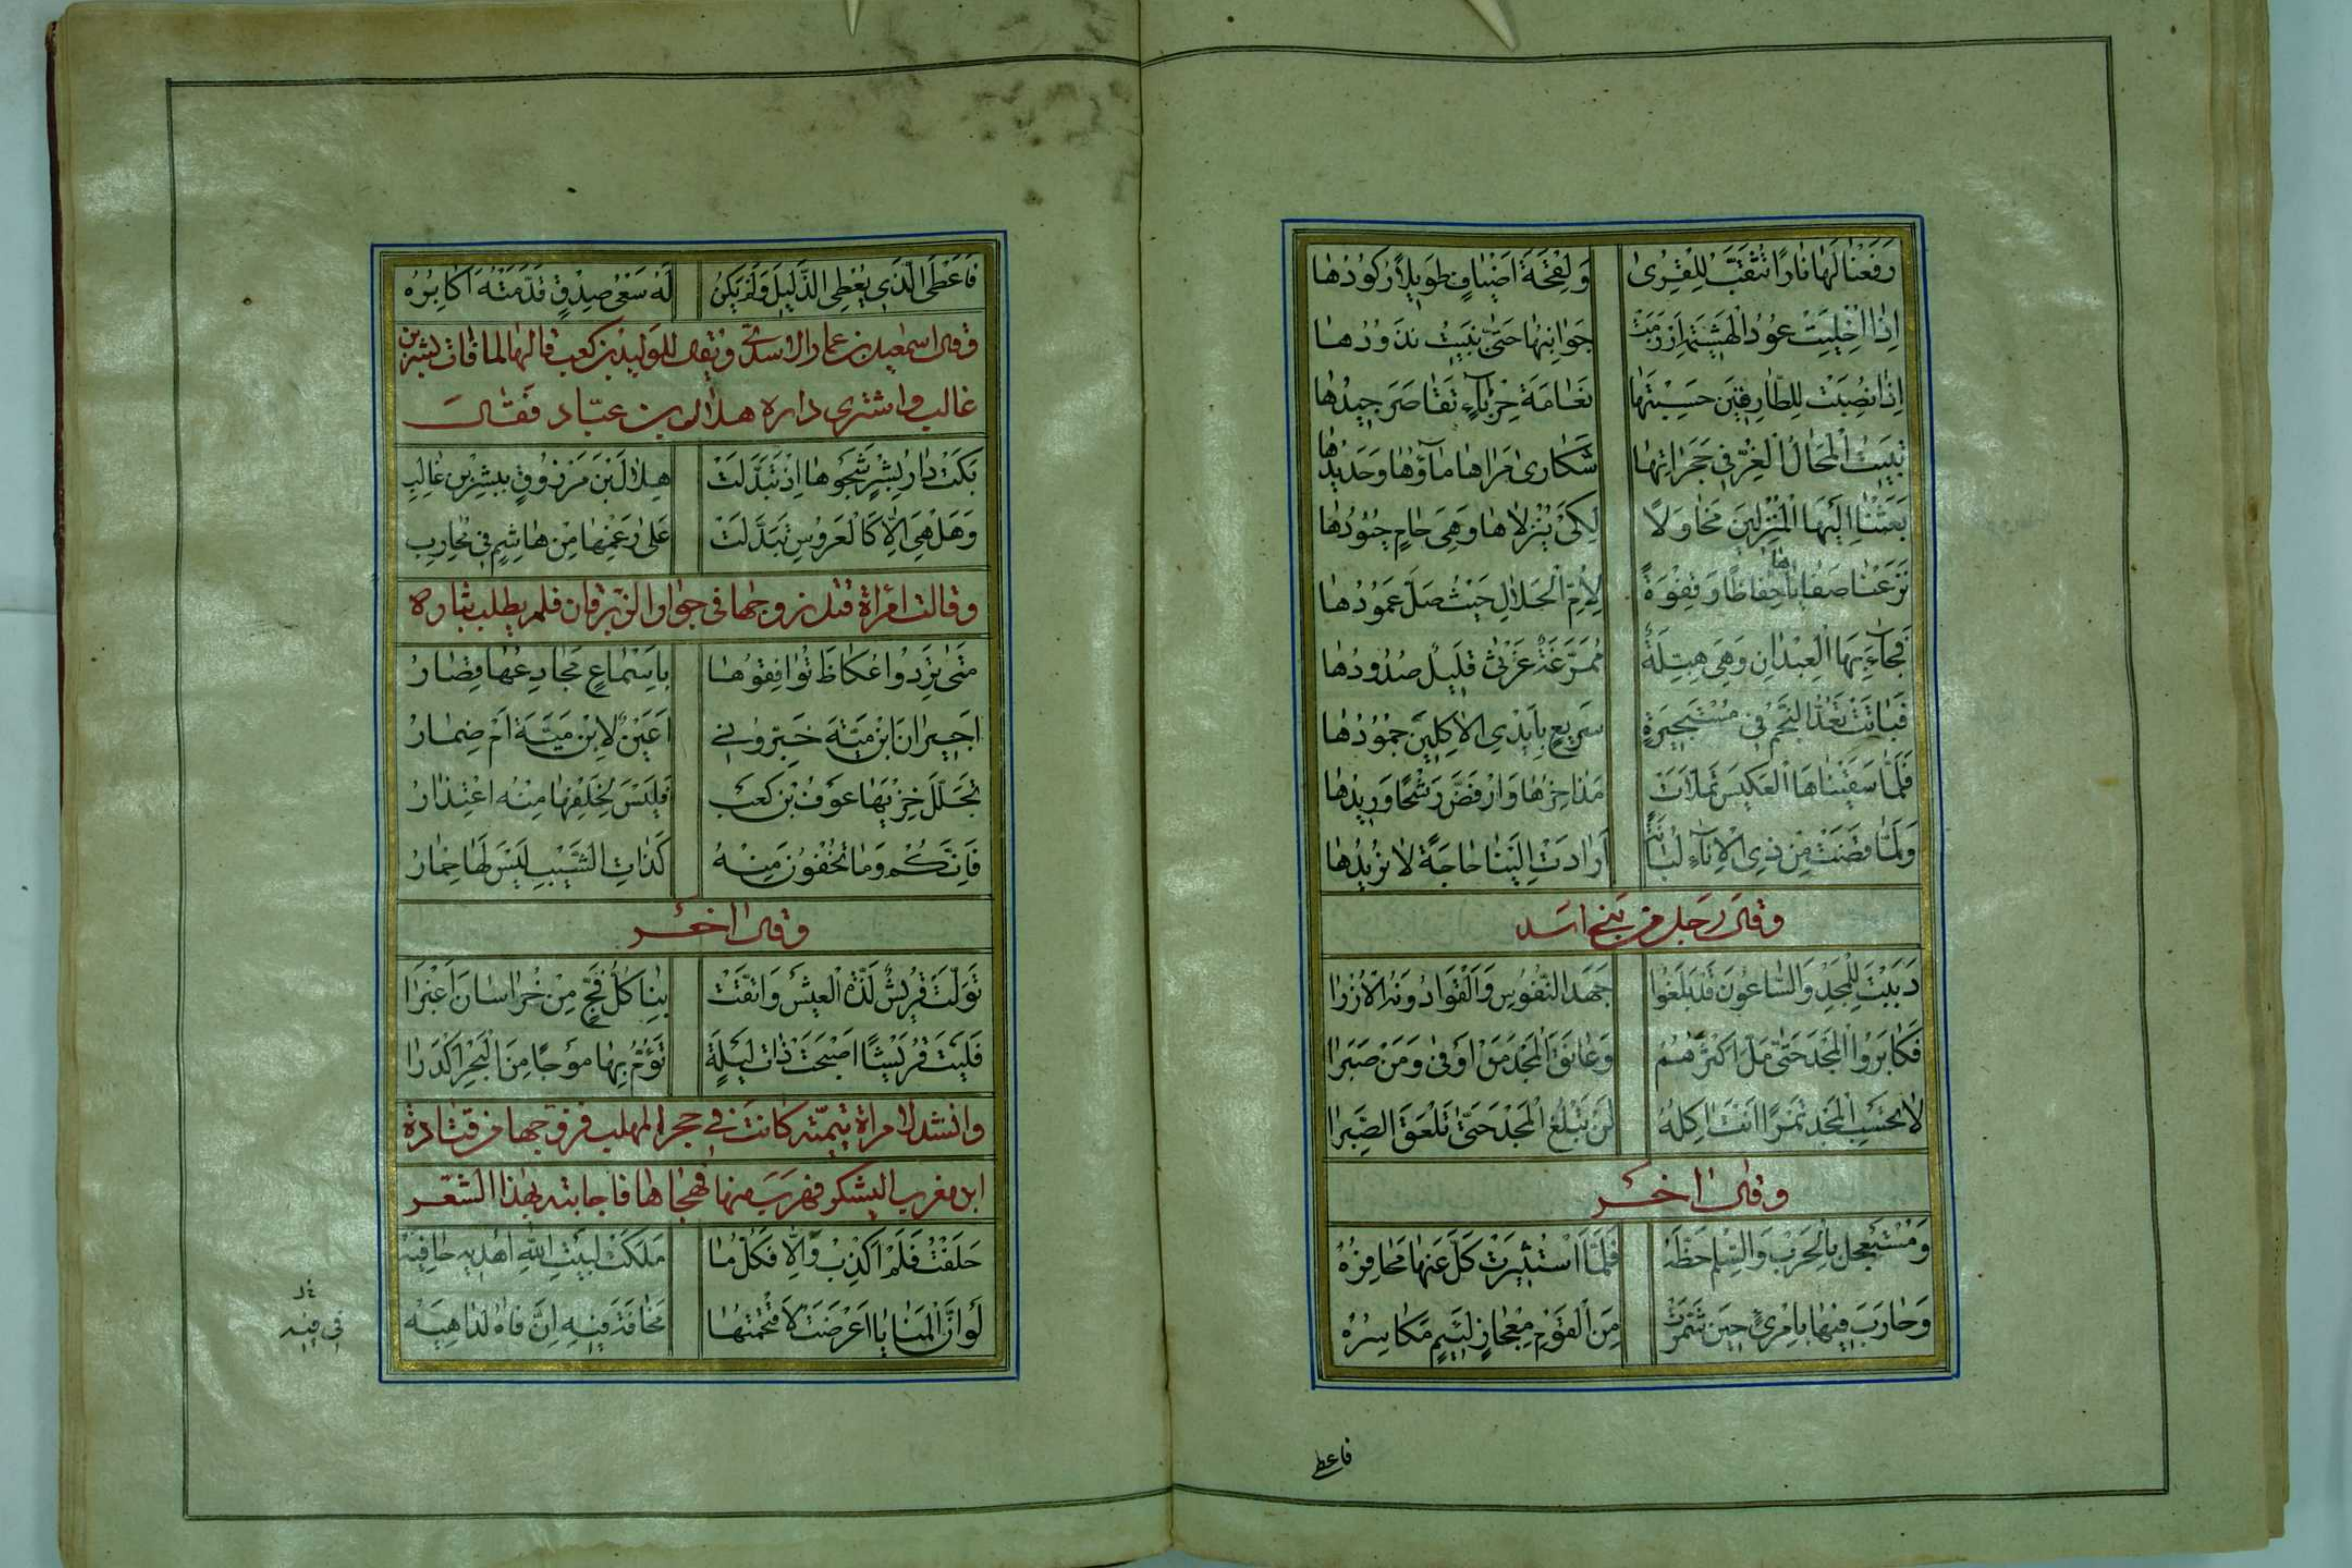 رَفَعْنَا لَهَا نَارًا تُثَقَّبُ لِلْقِرَى وَلِقْحَةَ اَضْيَافٍ طَوِيلًا رُكُودُهَا
اِذَا اُخْلِيَتْ عُودُ الْهَشِيمَةِ اَرْزَمَتْ جَوَانِبُهَا حَتَّى نَبِيتَ نَذُودُهَا
اِذَا نُصِبَتْ لِلطَّارِقِينَ حَسِبْتَهَا نَعَامَةَ حِزْبَاءٍ تَقَاصَرَ جِيدُهَا
تَبِيتُ الْمَحَالُ الْغُرُّ فِي حَجَرَاتِهَا شَكَارَى مَرَاهَا مَاؤُهَا وَحَدِيدُهَا
بَعَثْنَا اِلَيْهَا الْمُنْزِلَيْنِ فَحَاوَلَا لِكَيْ يُنْزِلَاهَا وَهِيَ حَامٍ حُيُودُهَا
فَبَاتَتْ تَعُدُّ النَّجْمَ فِي مُسْتَحِيرَةٍ سَرِيعٍ بِاَيْدِي الْاٰكِلِينَ جُمُودُهَا
فَلَمَّا سَقَيْنَاهَا الْعَكِيسَ تَمَلَّأَتْ مَذَاخِرُهَا وَارْفَضَّ رَشْحًا وَرِيدُهَا
وَلَمَّا قَضَتْ مِنْ ذِي الْاِنَاءِ لُبَانَةً اَرَادَتْ اِلَيْنَا حَاجَةً لَا نُرِيدُهَا
وقال رجل من بنى اسد
دَبَبْتَ لِلْمَجْدِ وَالسَّاعُونَ قَدْ بَلَغُوا جَهْدَ النُّفُوسِ وَاَلْقَوْا دُونَهُ الْاُزُرَا
فَكَابَرُوا الْمَجْدَ حَتَّى مَلَّ اَكْثَرُهُمْ وَعَانَقَ الْمَجْدَ مَنْ اَوْفَى وَمَنْ صَبَرَا
لَا تَحْسَبِ الْمَجْدَ تَمْرًا اَنْتَ اٰكِلُهُ لَنْ تَبْلُغَ الْمَجْدَ حَتَّى تَلْعَقَ الصَّبِرَا
وقال اخر
وَمُسْتَعْجِلٍ بِالْحَرْبِ وَالسِّلْمُ حَظُّهُ فَلَمَّا اسْتُثِيرَتْ كَلَّ عَنْهَا مَحَافِرُهُ
وَحَارَبَ فِيهَا بِامْرِئٍ حِينَ شَمَّرَتْ مِنَ الْقَوْمِ مِعْجَازٍ لَئِيمٍ مَكَاسِرُهُ
فاعطى
فَاَعْطَى الَّذِي يُعْطِي الذَّلِيلُ وَلَمْ يَكُنْ لَهُ سَعْيُ صِدْقٍ قَدَّمَتْهُ اَكَابِرُهُ
وقال اسمعيل بن عمار الاسدى ويقال للوليد بن كعب قالها لما مات بشر بن
غالب واشترى داره هلال بن عباد فقال
بَكَتْ دَارُ بِشْرٍ شَجْوَهَا اِذْ تَبَدَّلَتْ هِلَالَ بْنَ مَرْزُوقٍ بِبِشْرِ بْنِ غَالِبِ
وَهَلْ هِيَ اِلَّا كَالْعَرُوسِ تَبَدَّلَتْ عَلَى رَغْمِهَا مِنْ هَاشِمٍ فِي مُحَارِبِ
وقالت امرأة قتل زوجها فى جوار الزبرقان فلم يطلب بثاره
مَتَى تَرِدُوا عُكَاظَ تُوَافِقُوهَا بِاَسْمَاعٍ مَجَادِعُهَا قِصَارُ
اَجِيرَانَ ابْنِ مَيَّةَ خَبِّرُونِي اَعَيْنٌ لِابْنِ مَيَّةَ اَمْ ضِمَارُ
تَجَلَّلَ خِزْيَهَا عَوْفُ بْنُ كَعْبٍ فَلَيْسَ لِخُلْفِهَا مِنْهُ اعْتِذَارُ
فَاِنَّكُمْ وَمَا تُخْفُونَ مِنْهُ كَذَاتِ الشَّيْبِ لَيْسَ لَهَا خِمَارُ
وقال اخر
تَوَلَّتْ قُرَيْشٌ لَذَّةَ الْعَيْشِ وَاتَّقَتْ بِنَا كُلَّ فَجٍّ مِنْ خُرَاسَانَ اَغْبَرَا
فَلَيْتَ قُرَيْشًا اَصْبَحَتْ ذَاتَ لَيْلَةٍ تَؤُمُّ بِهَا مَوْجًا مِنَ الْبَحْرِ اَكْدَرَا
وانشد لامراة يتيمة كانت فى حجر المهلب فزوجها من قتادة
ابن مغرب اليشكر فهرب منها فهجاها فاجابته بهذا الشعر
حَلَفْتُ فَلَمْ اَكْذِبْ وَاِلَّا فَكُلُّ مَا مَلَكْتُ لِبَيْتِ اللّٰهِ اُهْدِيهِ حَافِيَهْ
لَوْ اَنَّ الْمَنَايَا اَعْرَضَتْ لَاقْتَحَمْتُهَا مَخَافَةَ فِيهِ اِنَّ فَاهُ لَدَاهِيَهْ